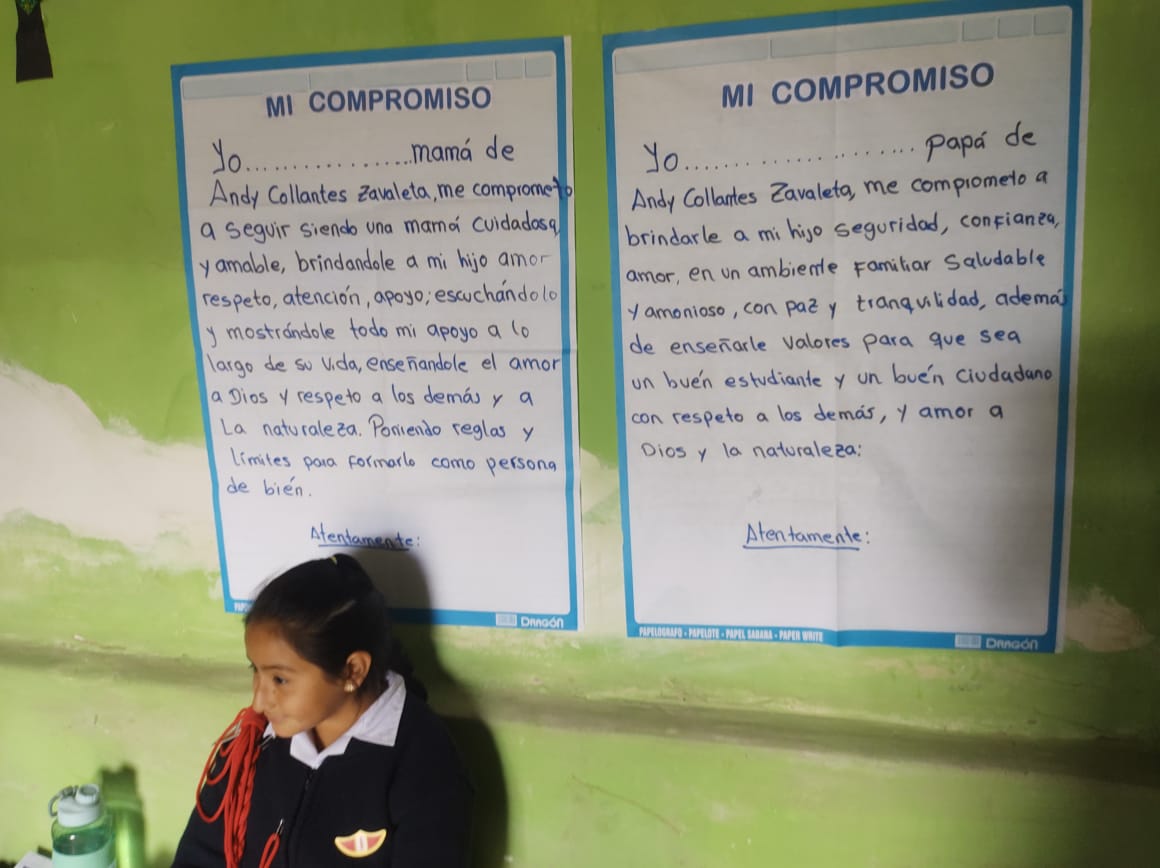 MI COMPROMISO
Yo................mamá de
Andy Collantes Zavaleta, me comprometo
a seguir siendo una mamá cuidadosa
y amable, brindandole a mi hijo amor
respeto, atención, apoyo; escuchándolo
y mostrándole todo mi apoyo a lo
largo de su vida, enseñandole el amor
a Dios y respeto a los demás y a
La naturaleza. Poniendo reglas y
límites para formarlo como persona
de bién.
Atentamente:
DRAGÓN
MI COMPROMISO
Yo.....................papá de
Andy Collantes Zavaleta, me comprometo a
brindarle a mi hijo seguridad, confianza,
amor, en un ambiente Familiar Saludable
y amonioso, con paz y tranquilidad, además
de enseñarle valores para que sea
un buén estudiante y un buén ciudadano
con respeto a los demás, y amor a
Dios y la naturaleza:
Atentamente:
PAPELOGRAFO - PAPELOTE - PAPEL SABANA - PAPER WRITE
DRAGÓN